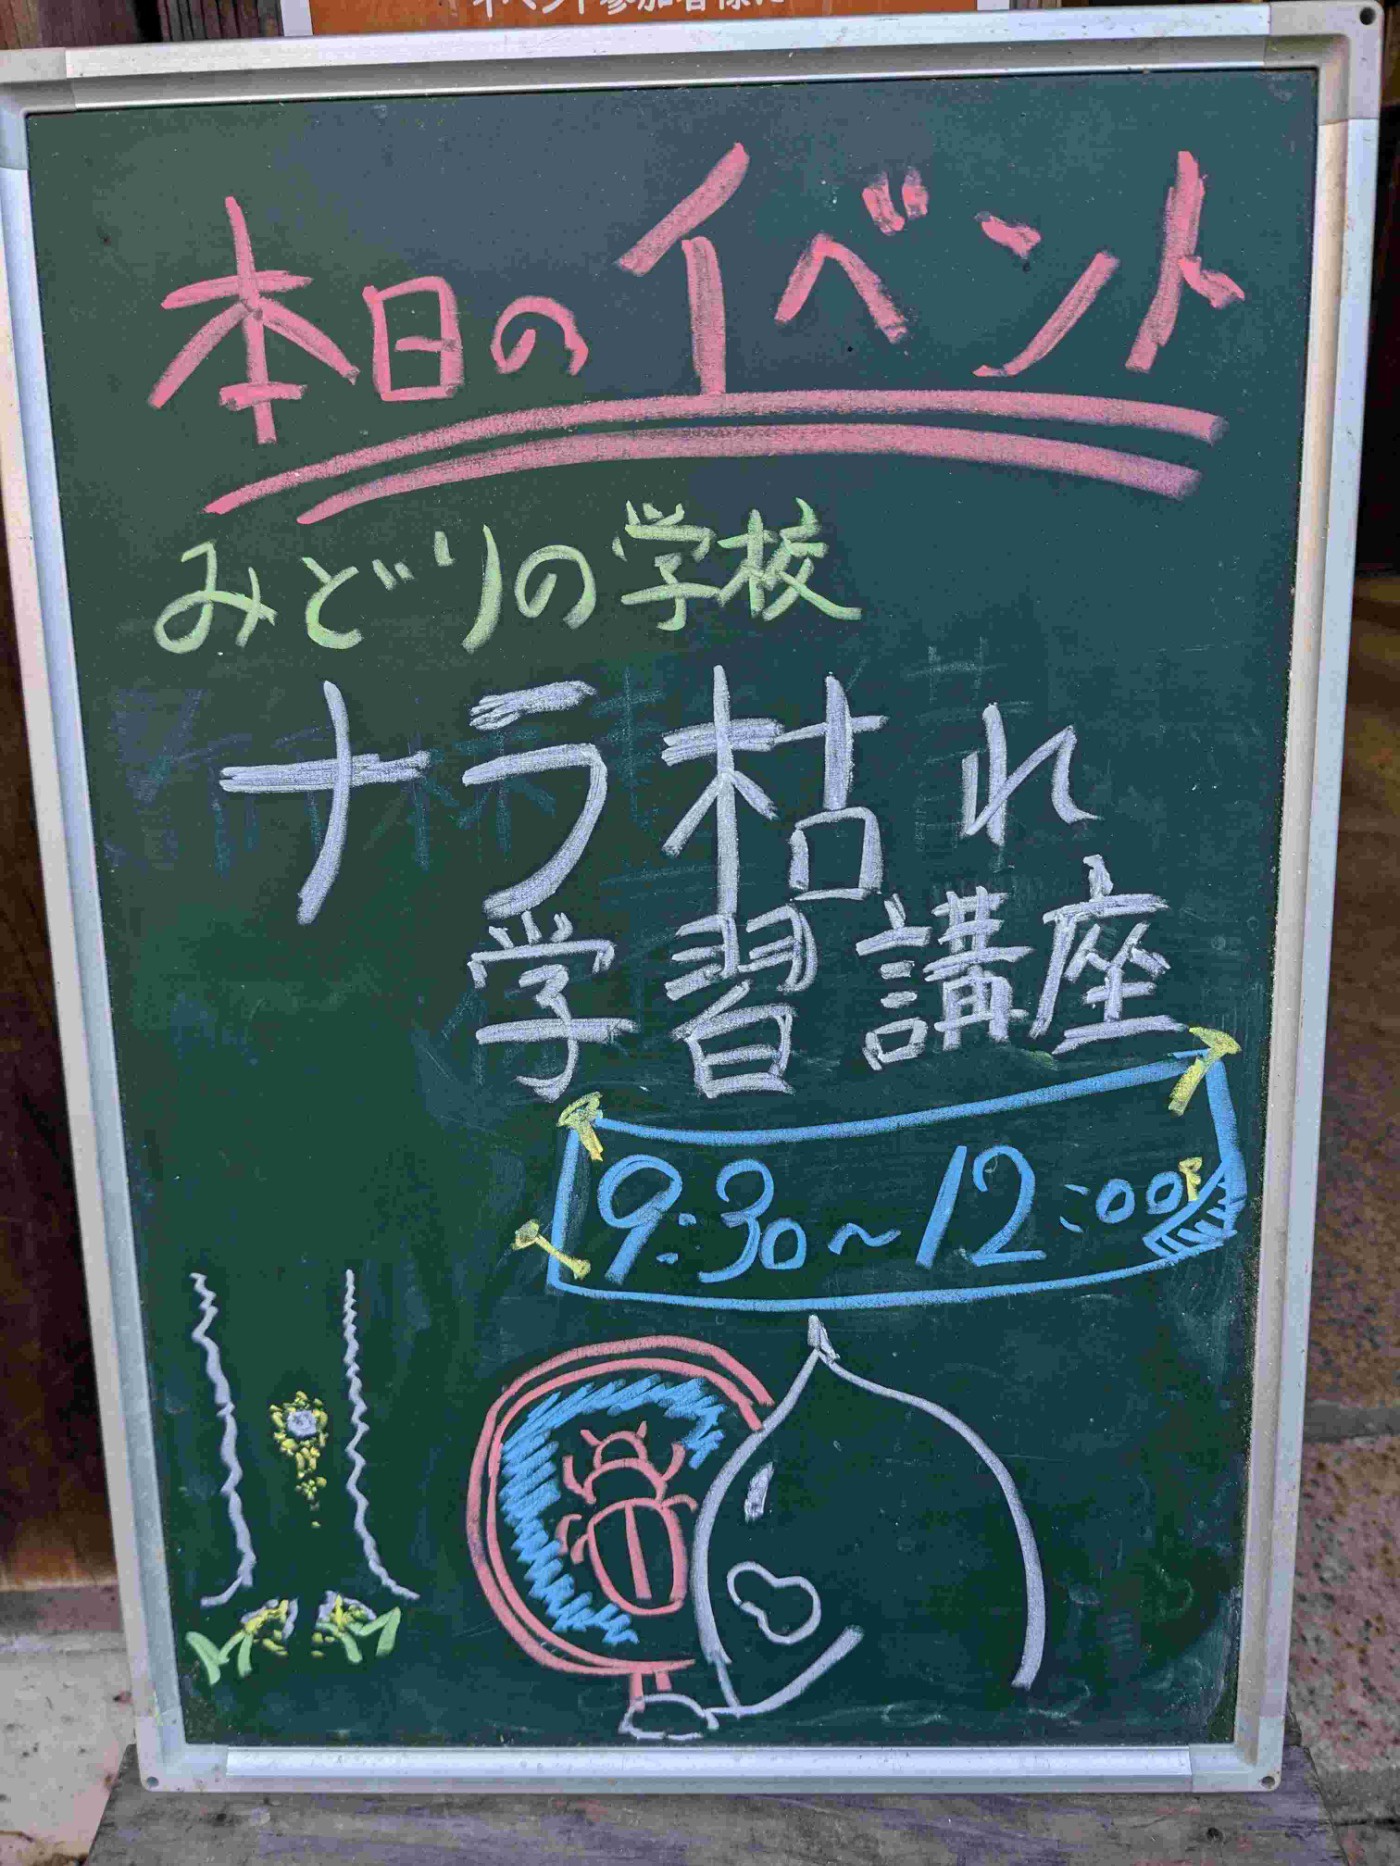 イベント参加者様に
本日のイベント
みどりの学校
ナラ枯れ
学習講座
9:30~12:00